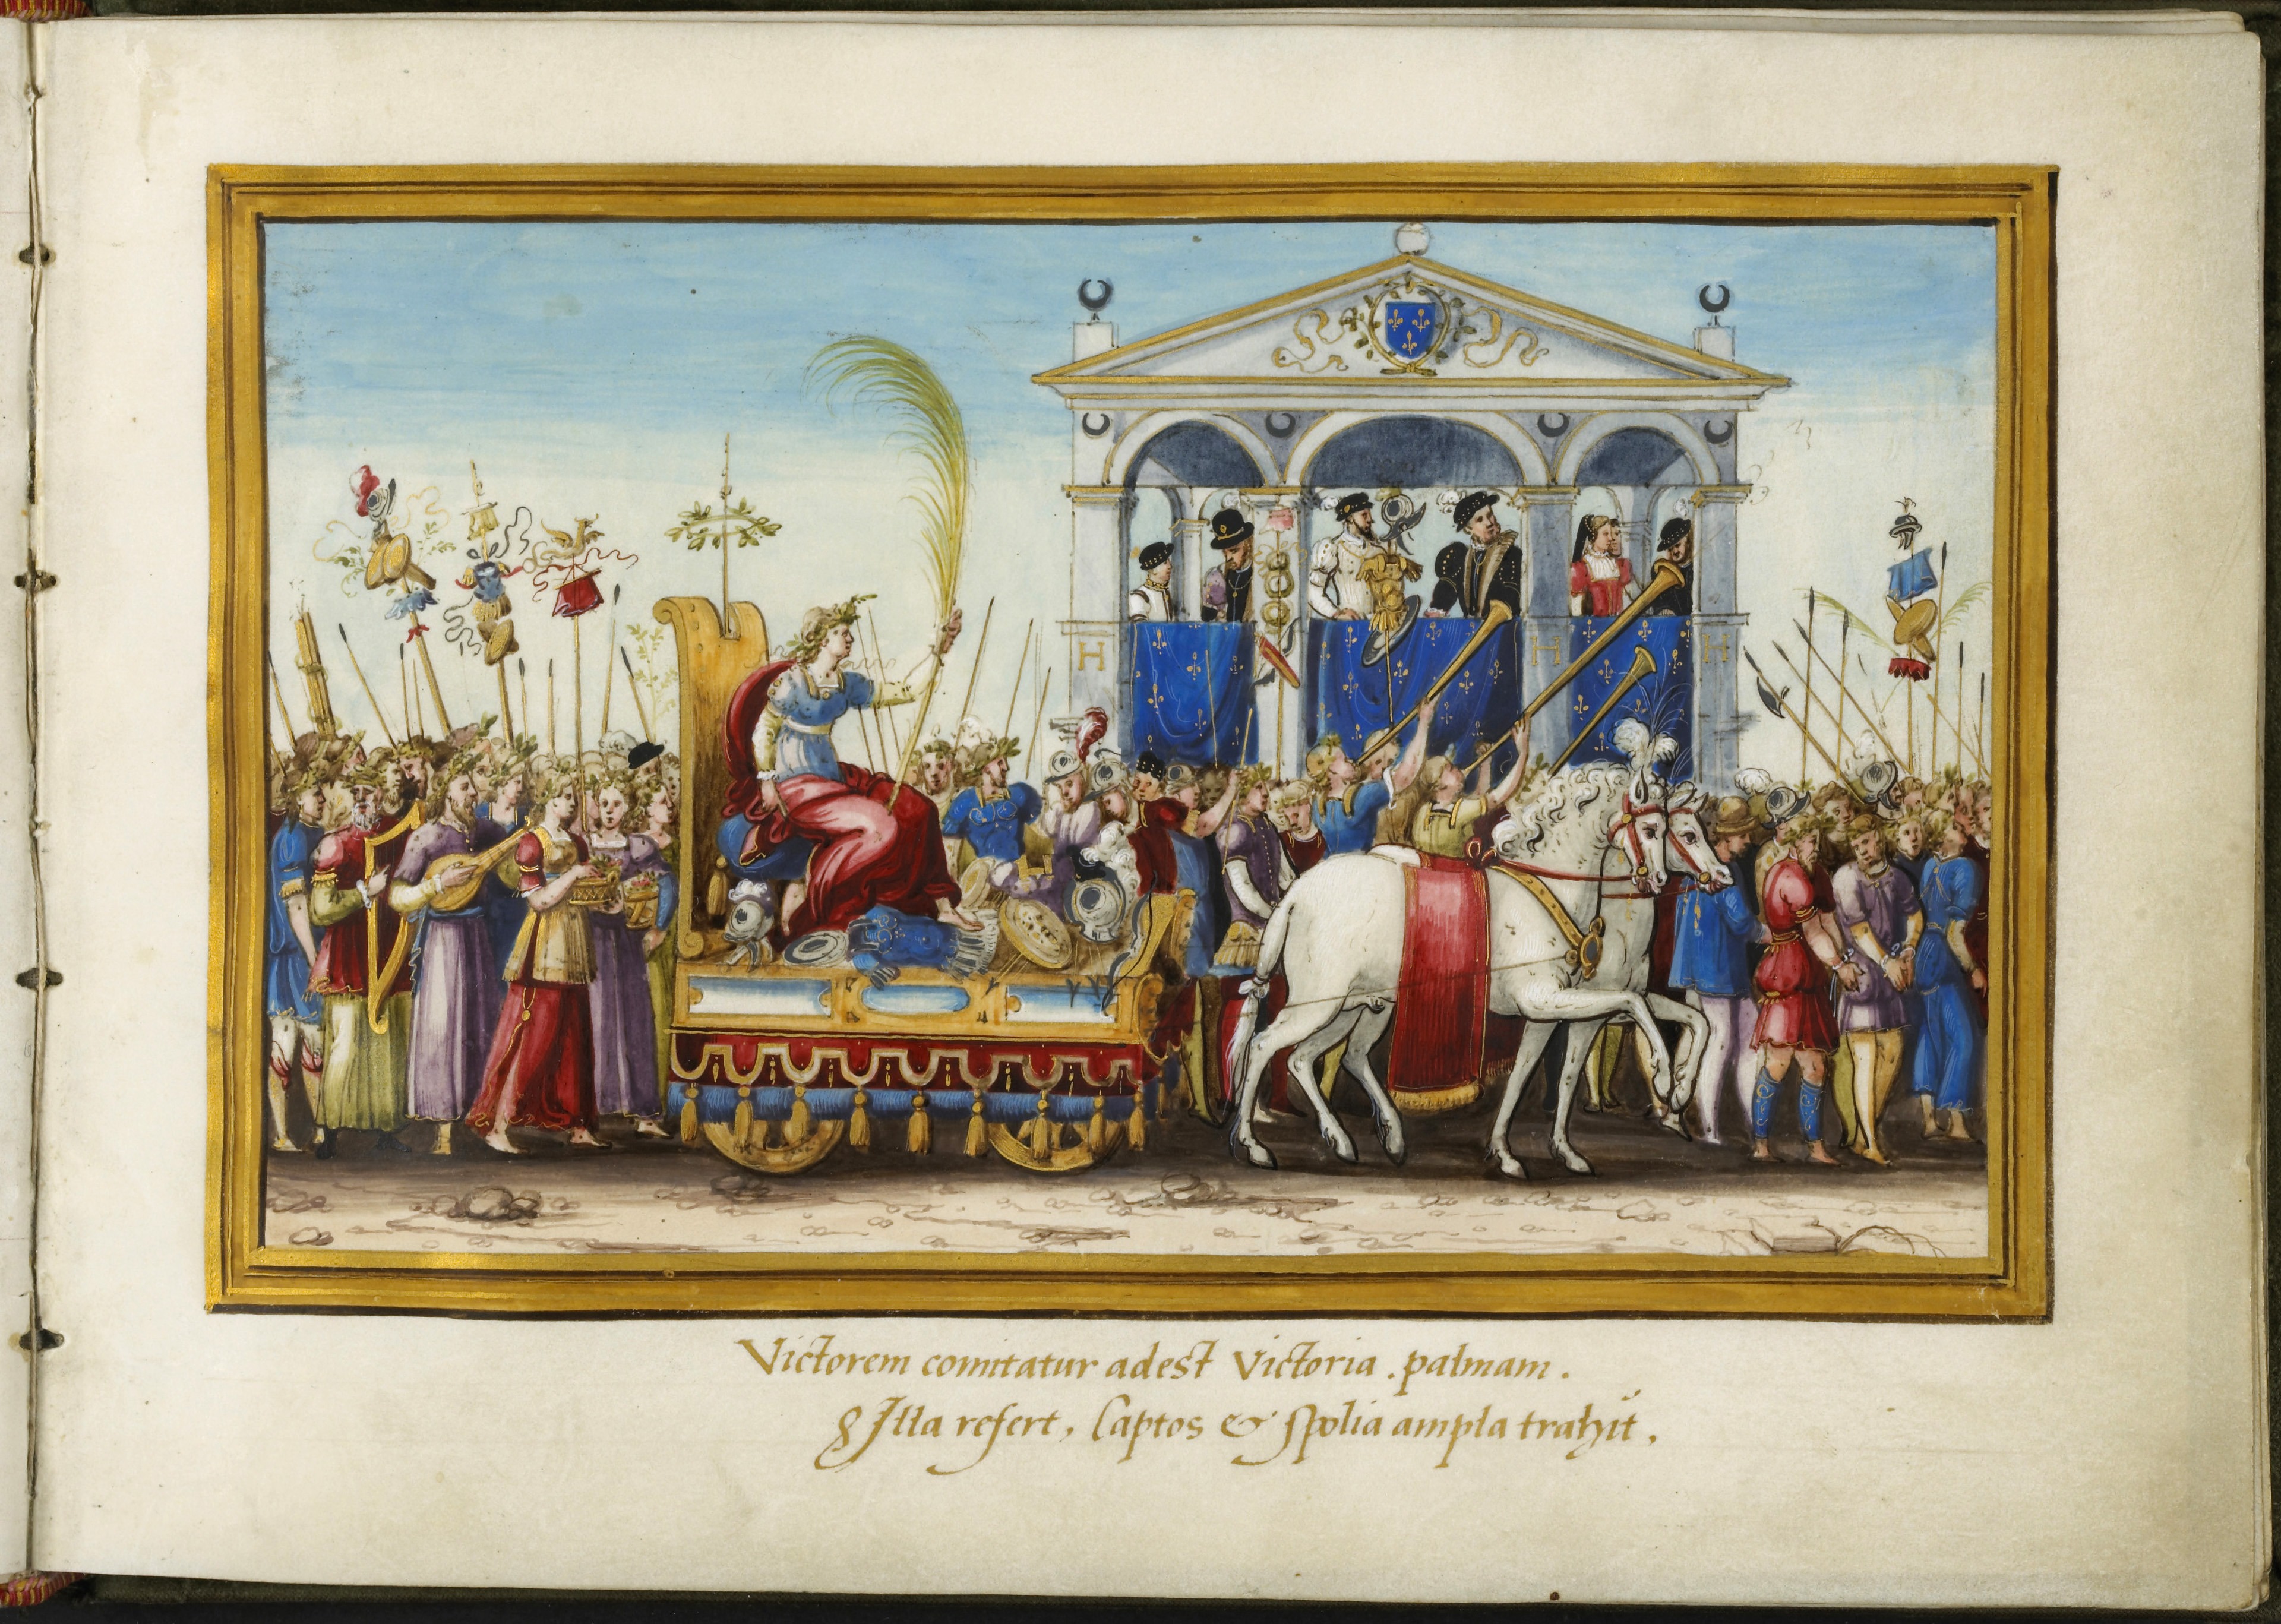 H H H
Victorem comitatur adest Victoria . palmam .
Illa refert, Captos & spolia ampla trahüt .